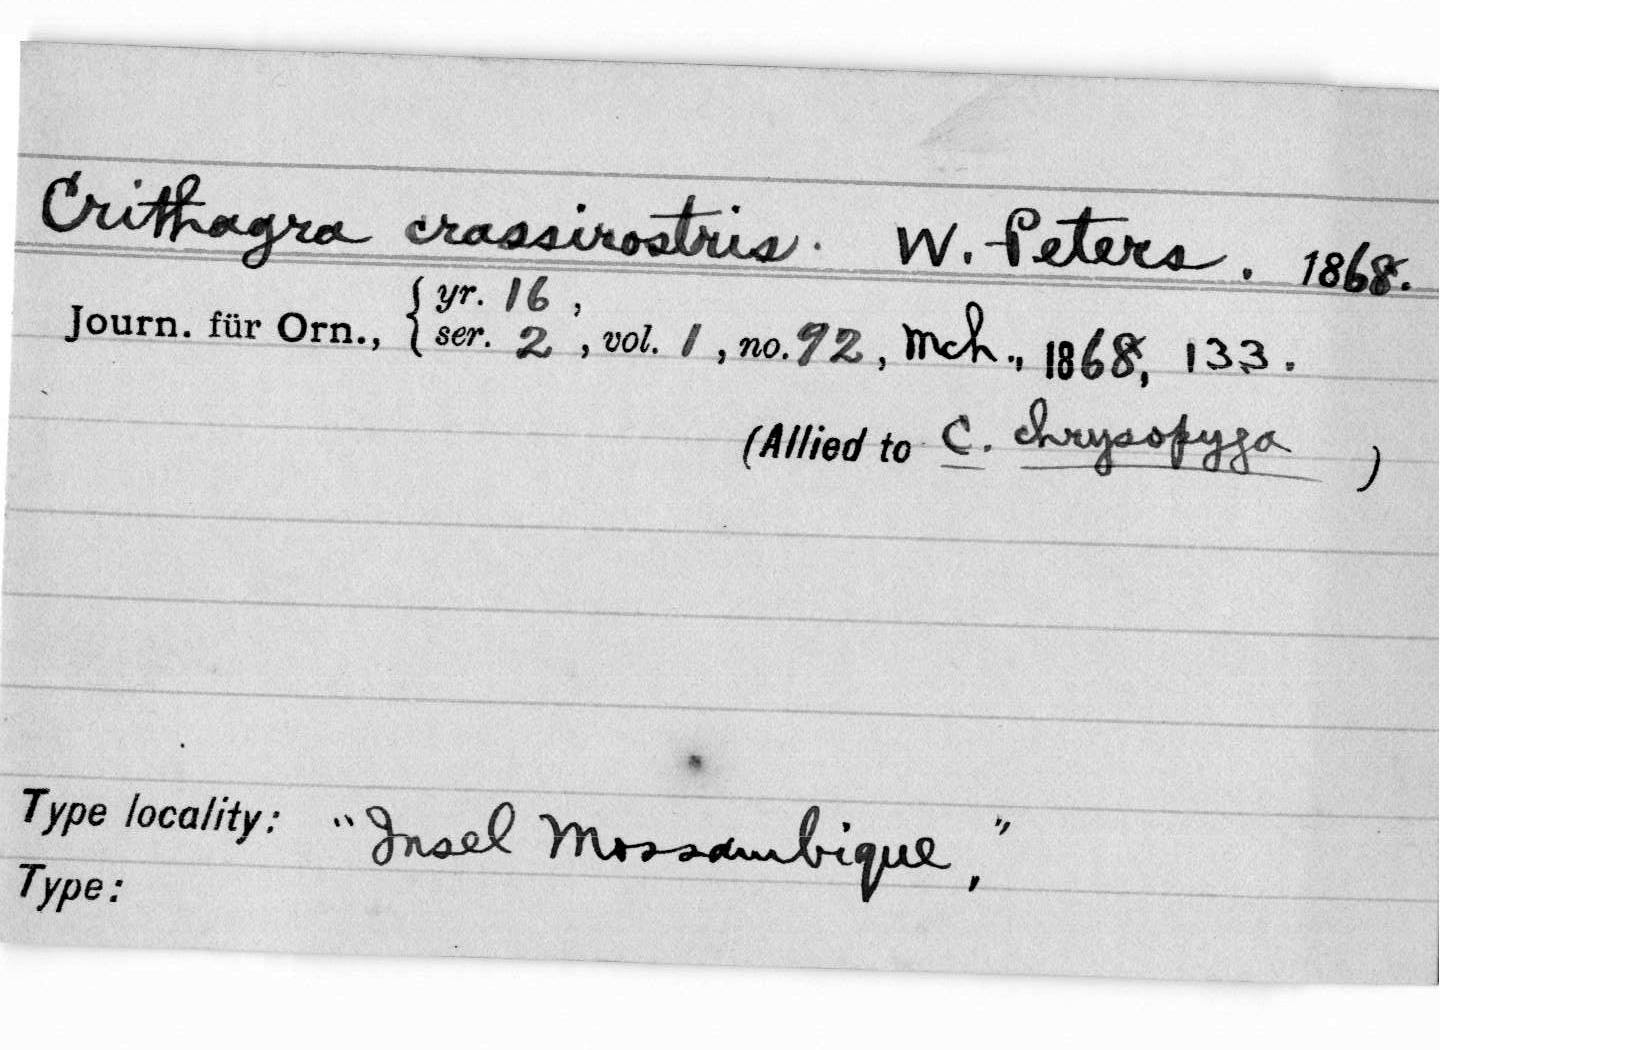 Crithagra crassirostris. W. Peters. 1868.
Journ. für Orn., { yr. 16, ser. 2, vol. 1, no. 92, Mch., 1868, 133.
(Allied to C. chrysopyga )
Type locality: "Insel Mossambique,"
Type: